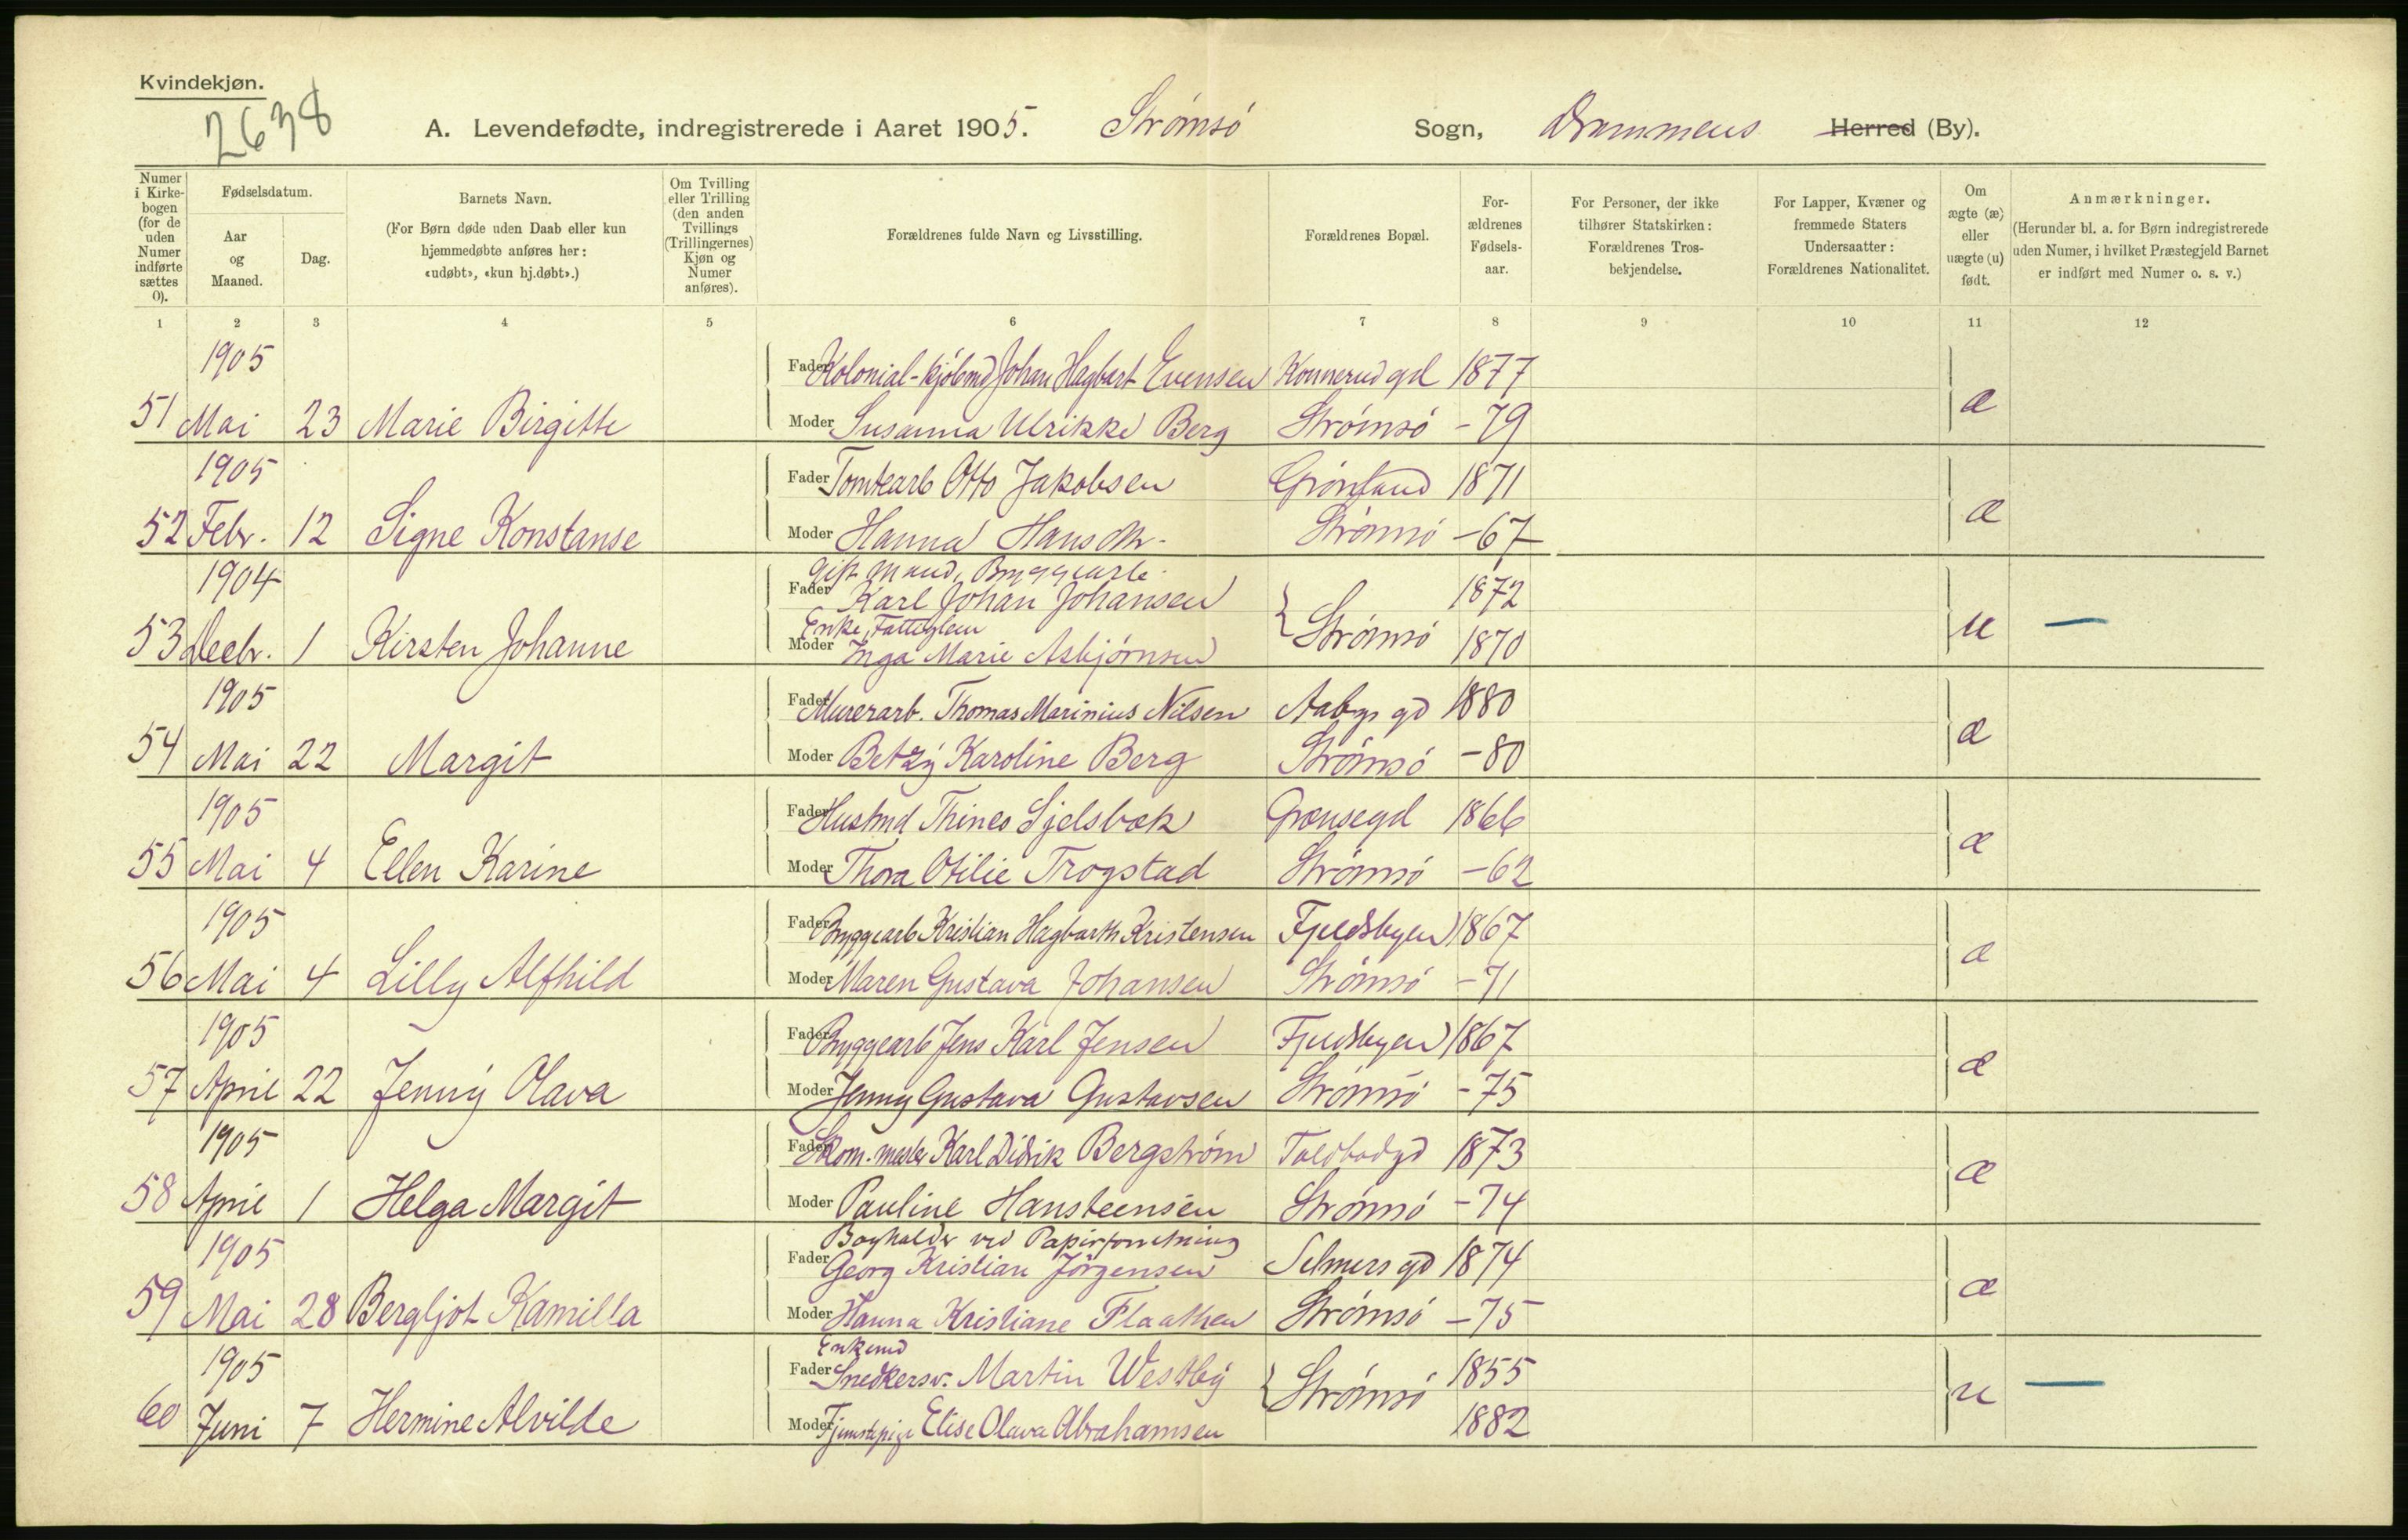 Kvindekjøn.
2638
A. Levendefødte, indregistrerede i Aaret 1905. Strømsø Sogn, Drammens Herred (By).
Numer i Kirkebogen (for de uden Numer indførte sættes 0).
Fødselsdatum.
Aar og Maaned.
Dag.
Barnets Navn.
(For Børn døde uden Daab eller kun hjemmedøbte anføres her: «udøbt», «kun hj.døbt».)
Om Tvilling eller Trilling (den anden Tvillings (Trillingernes) Kjøn og Numer anføres).
Forældrenes fulde Navn og Livsstilling.
Forældrenes Bopæl.
Forældrenes Fødselsaar.
For Personer, der ikke tilhører Statskirken: Forældrenes Trosbekjendelse.
For Lapper, Kvæner og fremmede Staters Undersaatter: Forældrenes Nationalitet.
Om ægte (æ) eller uægte (u) født.
Anmærkninger.
(Herunder bl. a. for Børn indregistrerede uden Numer, i hvilket Præstegjeld Barnet er indført med Numer o. s. v.)
1 2 3 4 5 6 7 8 9 10 11 12
1905 Fader Kolonial-kjøbmd Johan Hagbart Evensen Konnerudgd 1877
51 Mai 23 Marie Birgitte Moder Susanna Ulrikke Berg Strømsø -79 æ
1905 Fader Tomtearb Otto Jakobsen Grønland 1871
52 Febr. 12 Signe Konstanse Moder Hanna Hansdtr. Strømsø -67 æ
Gift Mand, Byggearb.
1904 Fader Karl Johan Johansen 1872
Enke, Fattiglem
53 Decbr. 1 Kirsten Johanne Moder Inga Marie Asbjørnsen Strømsø 1870 u —
1905 Fader Murerarb. Thomas Marinius Nilsen Aabys gd 1880
54 Mai 22 Margit Moder Betzy Karoline Berg Strømsø -80 æ
1905 Fader Husmd Thines Sjelsbæk Grænsegd 1866
55 Mai 4 Ellen Karine Moder Thora Otilie Trogstad Strømsø -62 æ
1905 Fader Byggearb Kristian Hagbarth Kristensen Fjeldbyen 1867
56 Mai 4 Lilly Alfhild Moder Maren Gustava Johansen Strømsø -71 æ
1905 Fader Byggearb Jens Karl Jensen Fjeldbyen 1867
57 April 22 Jenny Olava Moder Jenny Gustava Gustavsen Strømsø -75 æ
1905 Fader Skom. mester Karl Didrik Bergstrøm Toldbodgd 1873
58 April 1 Helga Margit Moder Pauline Hansteensen Strømsø -74 æ
Bogholder ved Papirforretning
1905 Fader Georg Kristian Jörgensen Selmers gd 1874
59 Mai 28 Bergljot Kamilla Moder Hanna Kristiane Flaathen Strømsø -75 æ
Enkemd
1905 Fader Snedkersv. Martin Westby 1855
60 Juni 7 Hermine Alvilde Moder Tjenestepige Elise Olava Abrahamsen Strømsø 1882 u —